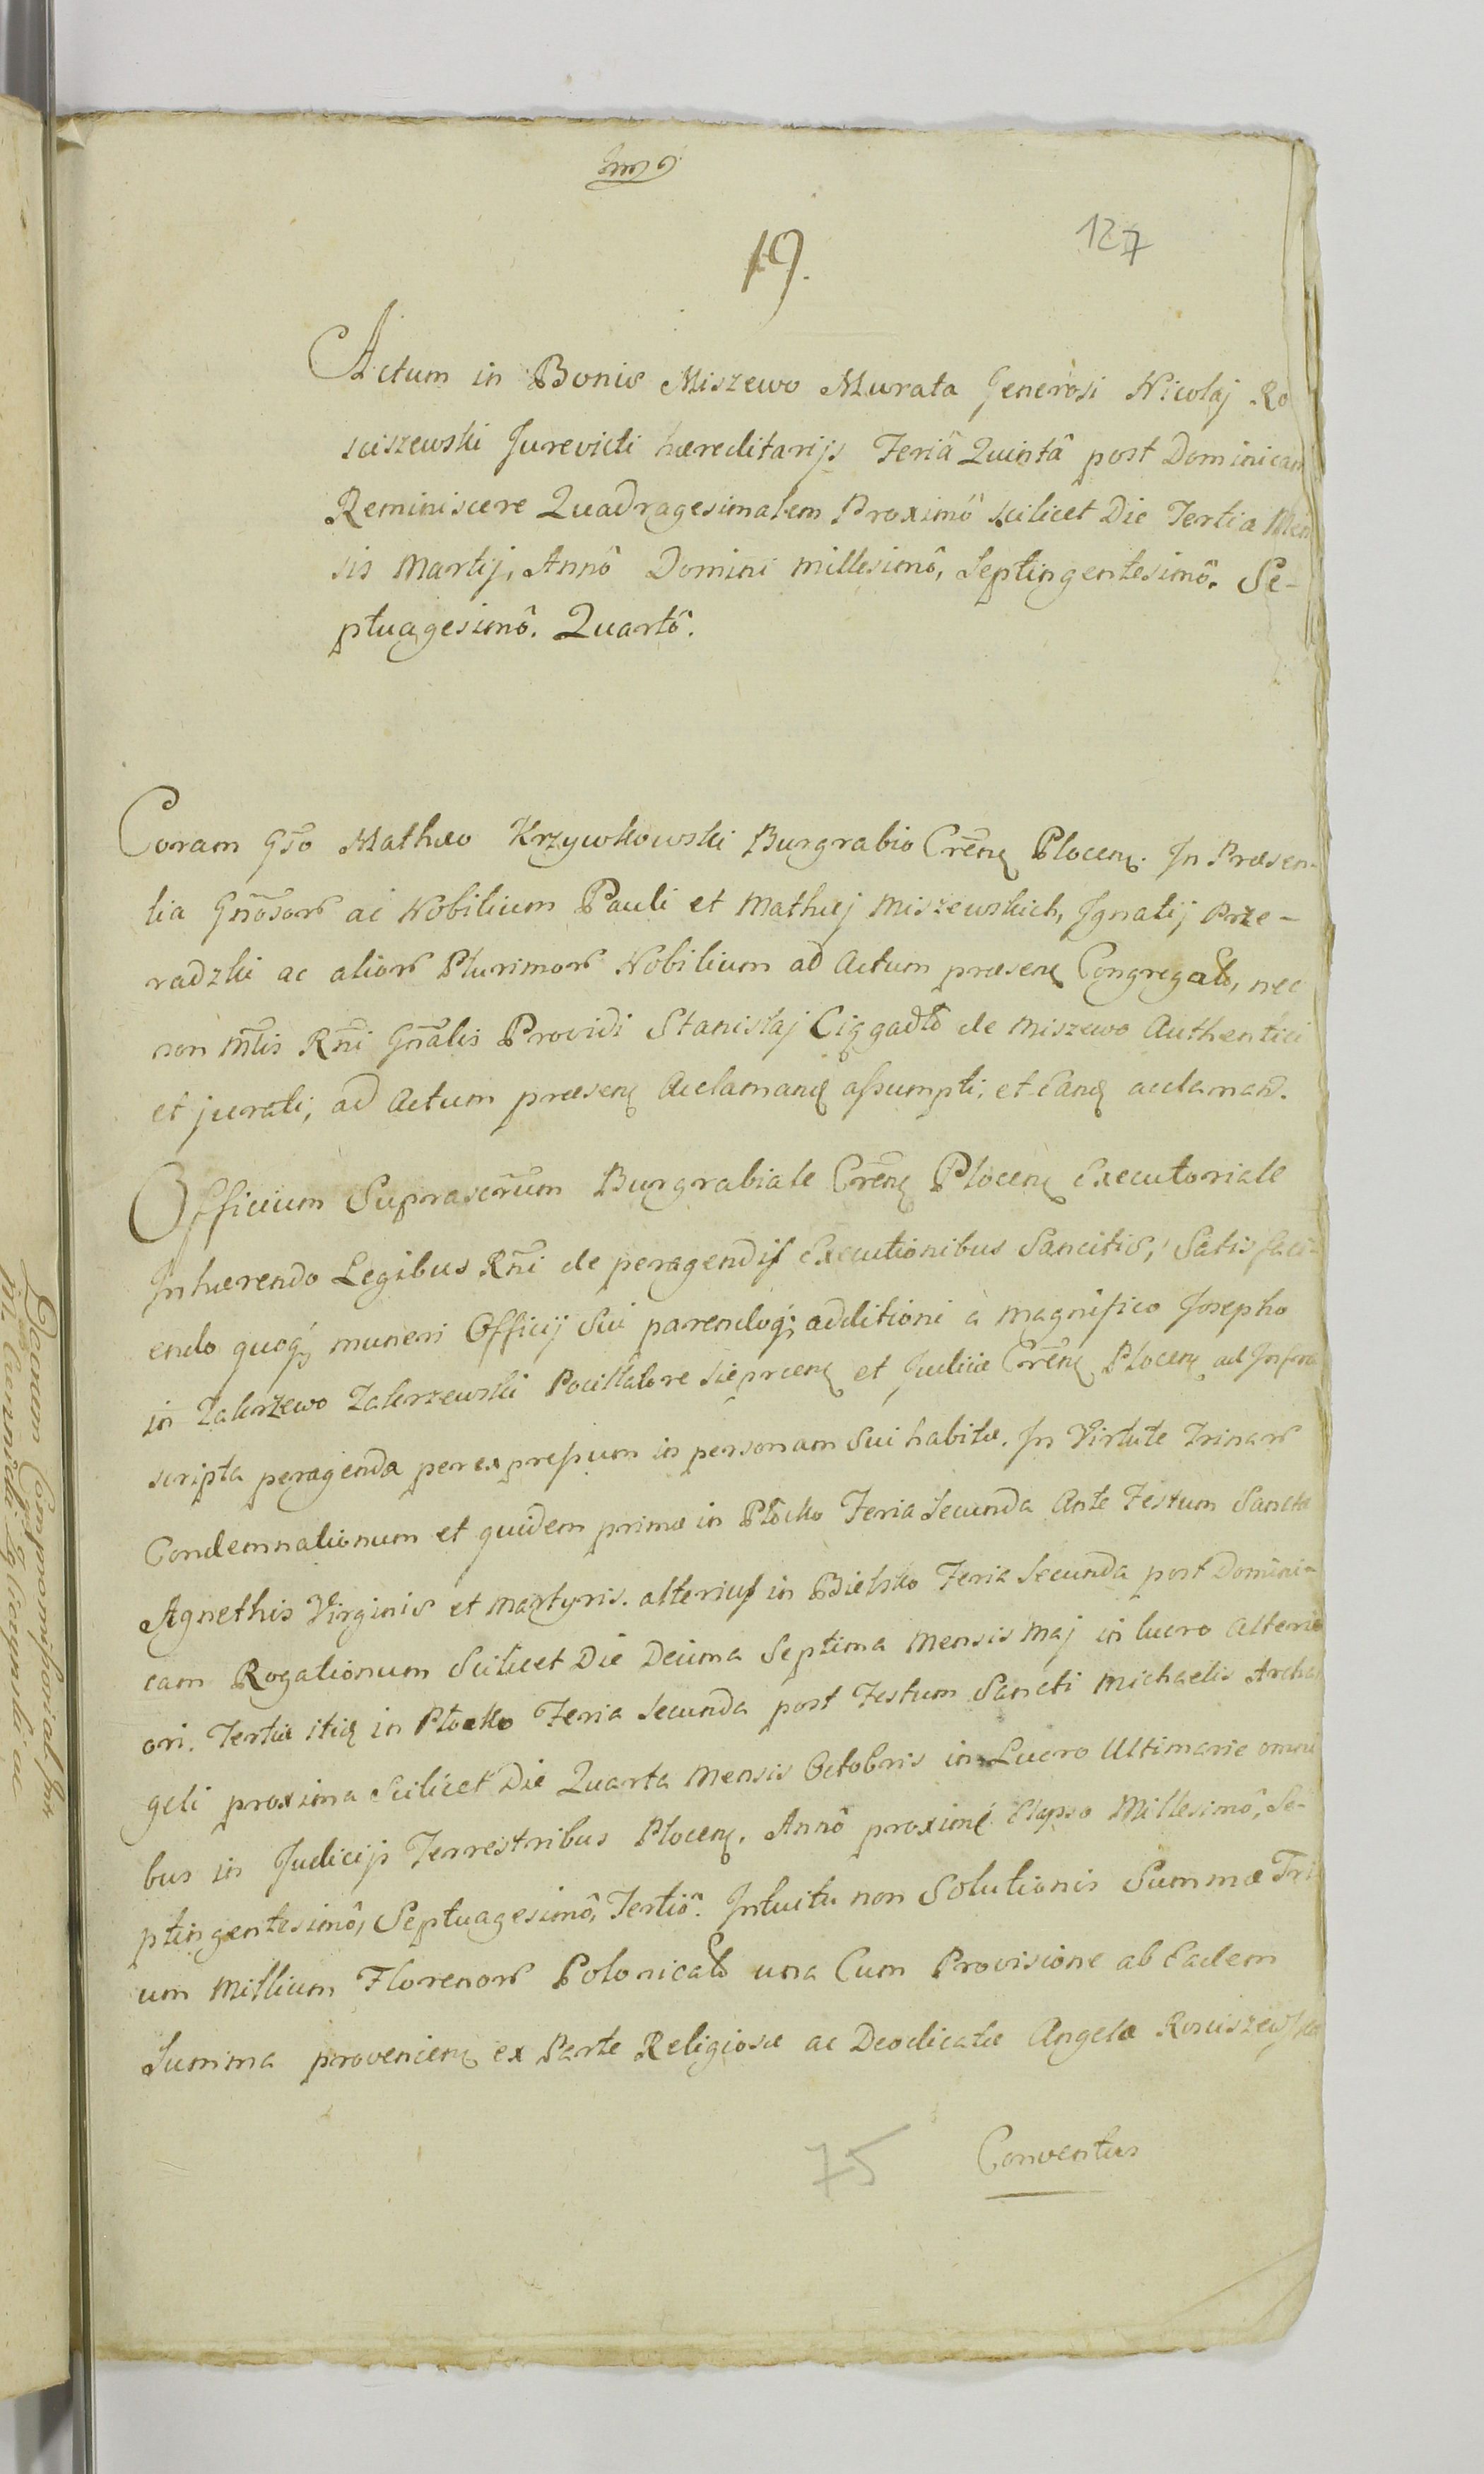 19.
127
Actum in Bonis Miszewo Murata Generosi Nicolaj Ro
sciszewski Jurevicti hæreditarijs Feriâ Quintâ post Dominicam
Reminiscere Quadragesimalem Proximô scilicet Die Tertia Men
sis Martij, Annô Domini millesimô, Septingentesimô. Se-
ptuagesimô. Quartô.
Coram Gso Mathæo Krzywkowski Burgrabio Cren Plocen. In Præsen-
tia Gnosor ac Nobilium Pauli et Mathæj Miszewskich, Ignatij Prze-
radzki ac alior Plurimor Nobilium ad Actum præsen Congregat, nec
non Mtis Rni Gnalis Providi Stanislaj de Miszewo Authentici
et jurati, ad Actum præsen Acclamand assumpti, et eand acclamand.
Officium Suprascrum Burgrabiale Cren Plocen Executoriale
Inhærendo Legibus Rni de peragendis Executionibus Sancitis, Satisfaci-
endo quoq muneri Officij Sui parendoq; additioni à Magnifico Josepho
in Zakrzewo Zakrzewski Pocillatore Sieprcen et Judice Cren Plocen ad Infra
scripta peragenda per expressum in personam Sui habitæ. In Virtute Trinar
Condemnationum et quidem primæ in Płocko Feria Secunda Ante Festum Sanctæ
Agnethis Virginis et Martyris. alterius in Bielsko Feria Secunda post Domini-
cam Rogationum Scilicet Die Decima Septima Mensis Maj in lucro Alteri
ori. Tertiæ itid in Płocko Feria Secunda post Festum Sancti Michaelis Archan
geli proxima Scilicet Die Quarta Mensis Octobris in Lucro Ultimarie omni
bus in Judicijs Terrestribus Plocen. Annô proximé Elapso Millesimô, Se-
ptingentesimô, Septuagesimô, Tertiô. Intuitu non Solutionis Summæ Tri
um Millium Florenor Polonical una Cum Provisione ab Eadem
Summa provenien ex Parte Religiosæ ac Deodicatæ Angelæ Rosciszewska
75
Conventus